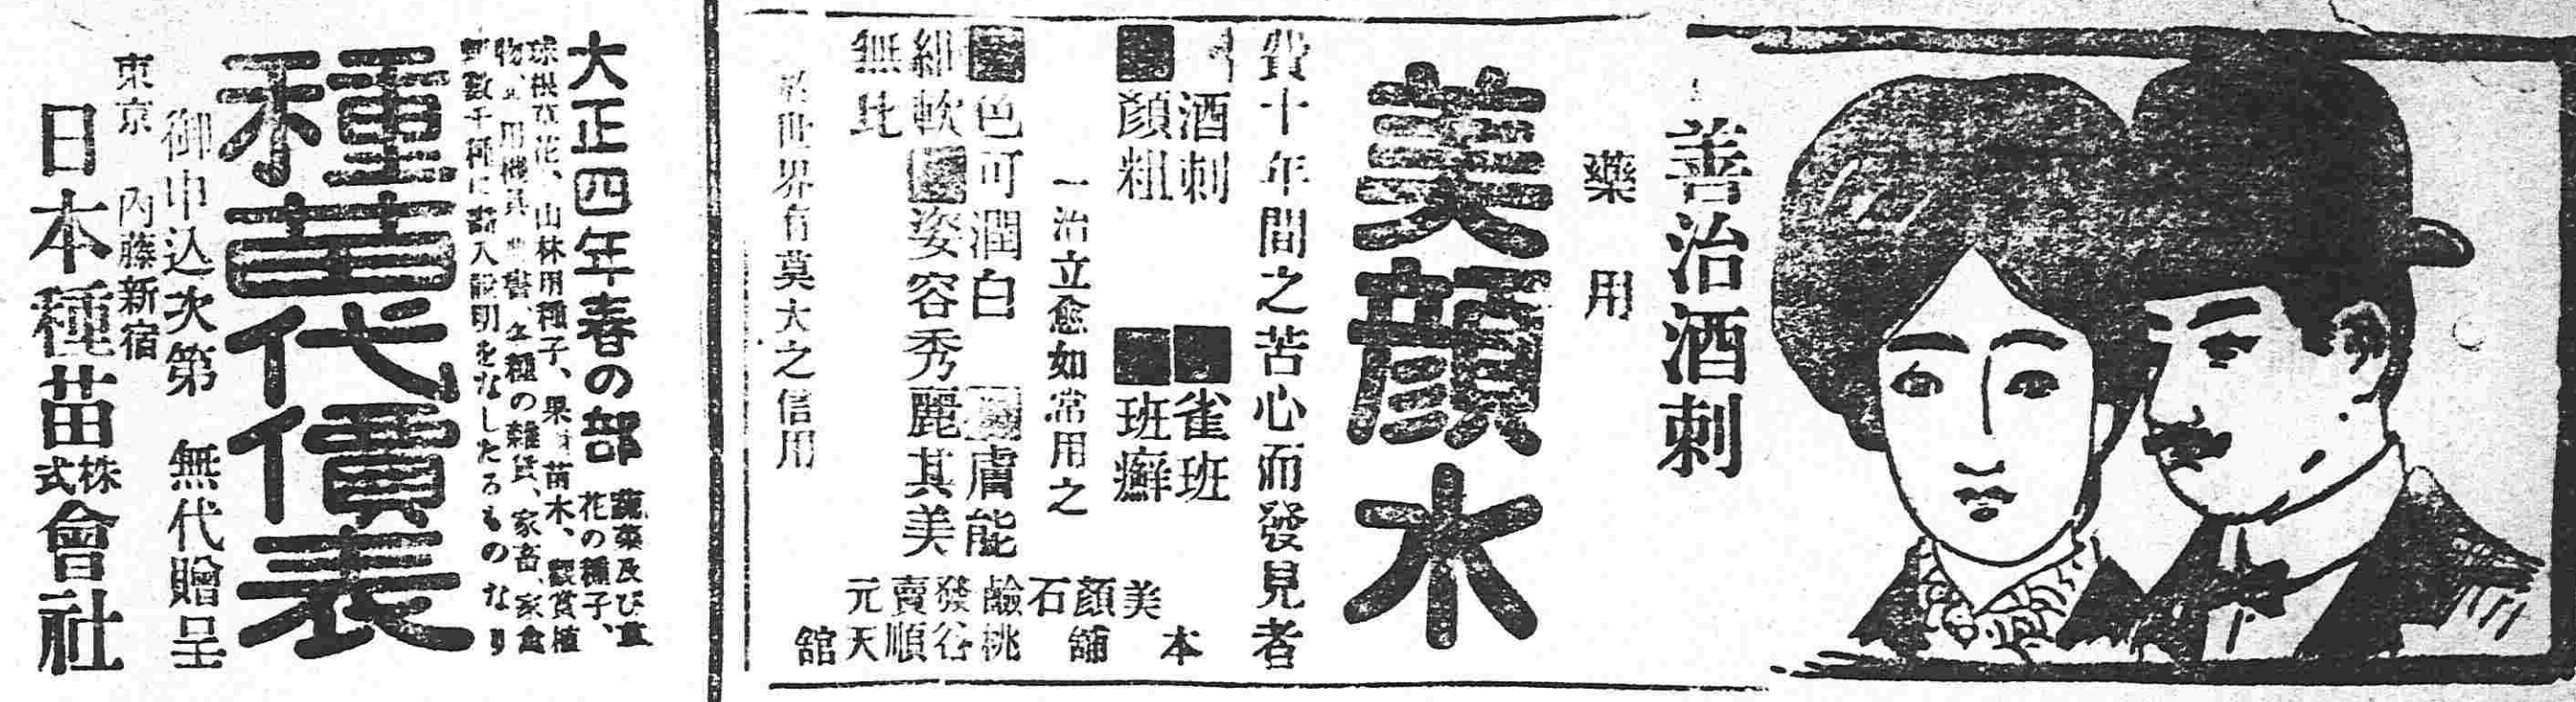 善治酒刺
藥用
美顔水
費十年間之苦心而發見者
酒刺 雀班
顔粗 班癬
一治立愈如常用之
色可潤白 膚能
細軟 姿容秀麗其美
無比
世界有莫大之信用
美顔石鹼發賣元
本舖 桃谷順天館
大正四年春の部
蔬菜及び
花の種子、
球根草花、山林用種子、果 苗木、觀賞植
用機具 書、各種の雜貨、家畜、家禽
數千種に 入說明をなしたるものなり
種苗代價表
御申込次第 無代贈呈
東京 內藤新宿
日本種苗株式會社